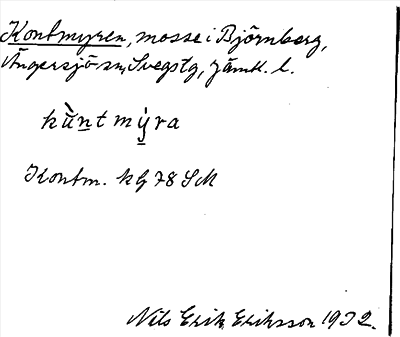 Kontmyren, mosse i Björnberg,
Ängersjö sn, Svegs tg, Jämtl. l.
kùntmýra
Kontm. kG 78 SM
Nils Erik Eriksson 1932.